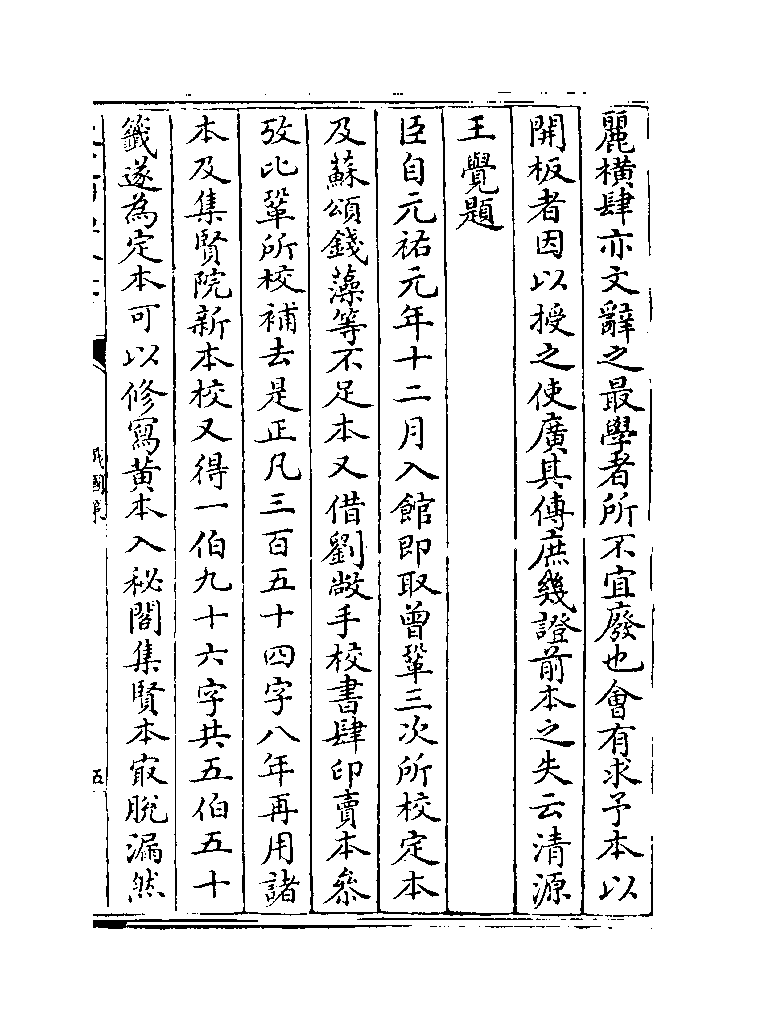 麗橫肆亦文辭之最學者所不宜廢也會有求予本以
開板者因以授之使廣其傳庶幾證前本之失云清源
王覺題
臣自元祐元年十二月入館即取曾鞏三次所校定本
及蘇頌錢藻等不足本又借劉敞手校書肆印賣本叅
攷比鞏所校補去是正凡三百五十四字八年再用諸
本及集賢院新本校又得一伯九十六字共五伯五十
籖遂為定本可以修寫黄本入秘閣集賢本㝡脫漏然
戰國策
五